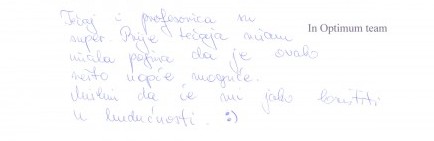 Tečaj i profesorica su
super. Prije tečaja nisam
imala pojma da je ovako
nešto uopće moguće.
Mislim da će mi jako koristiti
u budućnosti. :)
In Optimum team